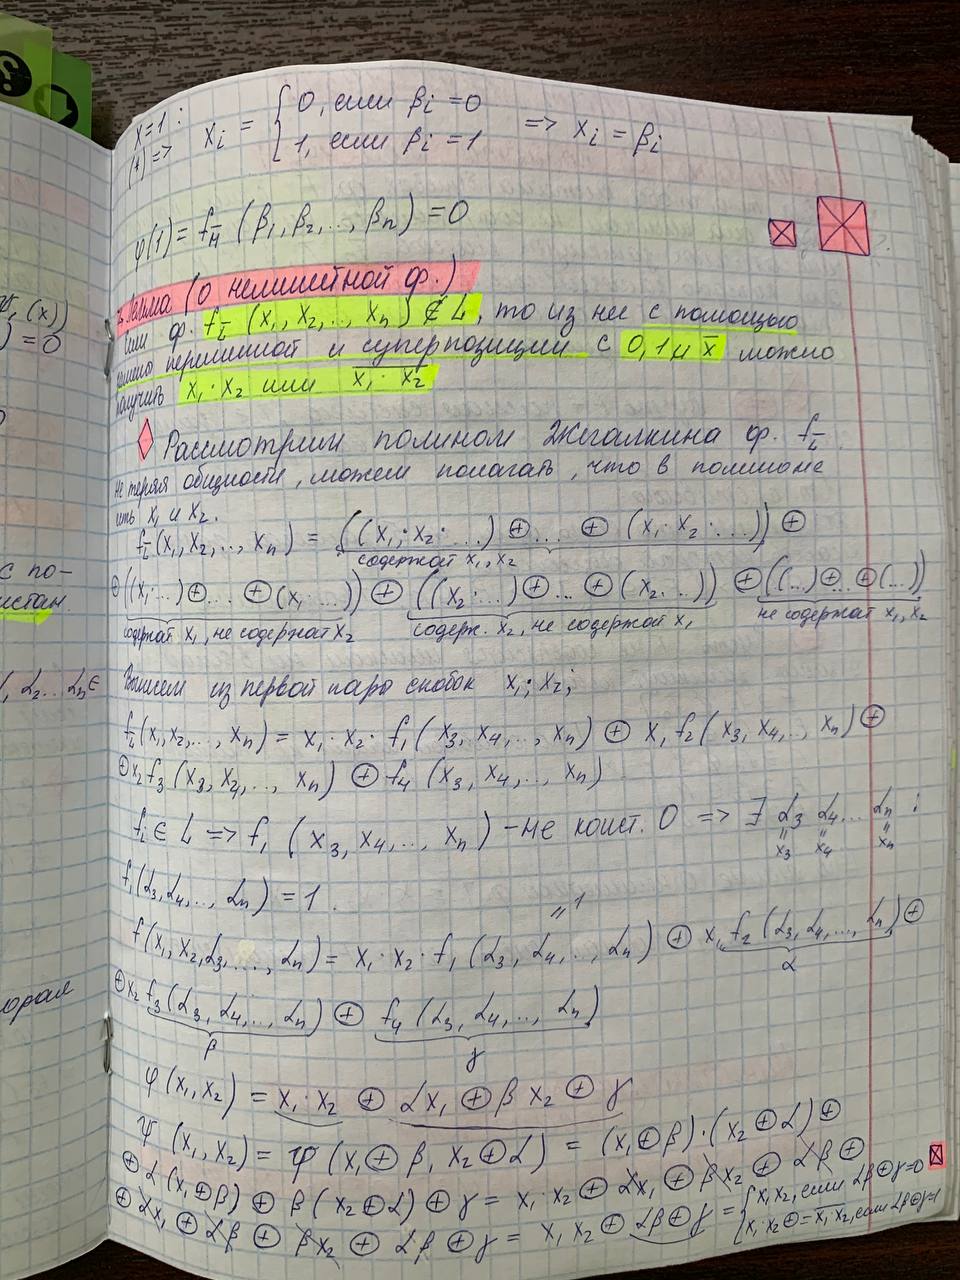 x=1:
(*) => xᵢ = { 0, если βᵢ = 0
1, если βᵢ = 1 => xᵢ = βᵢ
φ(1) = f_M̄ (β₁, β₂, .., βₙ) = 0
Лемма (о нелинейной ф.)
ф. f_L̄ (x₁, x₂, .., xₙ) ∉ L, то из нее с помощью
переменной и суперпозиции с 0, 1 и x̄ можно
получить x₁·x₂ или x̄₁·x̄₂
Рассмотрим полином Жегалкина ф. f_L̄.
не теряя общности, можем полагать, что в полиноме
есть x₁ и x₂.
f_L̄(x₁, x₂, .., xₙ) = ((x₁·x₂·...) ⊕ ... ⊕ (x₁·x₂·...)) ⊕
содержат x₁, x₂
⊕ ((x₁·...) ⊕ ... ⊕ (x₁·...)) ⊕ ((x₂·...) ⊕ ... ⊕ (x₂...)) ⊕ ((...) ⊕ .. ⊕ (...))
содержат x₁, не содержат x₂ содерж. x₂, не содержат x₁ не содержат x₁, x₂
Вынесем из первой пары скобок x₁; x₂;
f_L̄(x₁, x₂, .., xₙ) = x₁·x₂·f₁(x₃, x₄, .., xₙ) ⊕ x₁f₂(x₃, x₄, .., xₙ) ⊕
⊕ x₂f₃(x₃, x₄, .., xₙ) ⊕ f₄(x₃, x₄, .., xₙ)
fᵢ ∈ L => f₁(x₃, x₄, .., xₙ) - не конст. 0 => ∃ α₃ α₄ ... αₙ :
= = =
x₃ x₄ xₙ
f₁(α₃, α₄, .., αₙ) = 1.
= 1
f(x₁, x₂, α₃, ..., αₙ) = x₁·x₂·f₁(α₃, α₄, .., αₙ) ⊕ x₁f₂(α₃, α₄, ..., αₙ) ⊕
α
⊕ x₂ f₃(α₃, α₄, .., αₙ) ⊕ f₄(α₃, α₄, .., αₙ)
β γ
φ(x₁, x₂) = x₁·x₂ ⊕ αx₁ ⊕ βx₂ ⊕ γ
ψ(x₁, x₂) = φ(x₁⊕β, x₂⊕α) = (x₁⊕β)·(x₂⊕α) ⊕
⊕ α(x₁⊕β) ⊕ β(x₂⊕α) ⊕ γ = x₁·x₂ ⊕ αx₁ ⊕ βx₂ ⊕ αβ ⊕
⊕ αx₁ ⊕ αβ ⊕ βx₂ ⊕ αβ ⊕ γ = x₁x₂ ⊕ αβ ⊕ γ = { x₁x₂, если αβ⊕γ=0
x₁·x₂⊕ = x₁·x₂, если αβ⊕γ=1
(x)
) = 0
с по-
, α₂... αₙ ∈